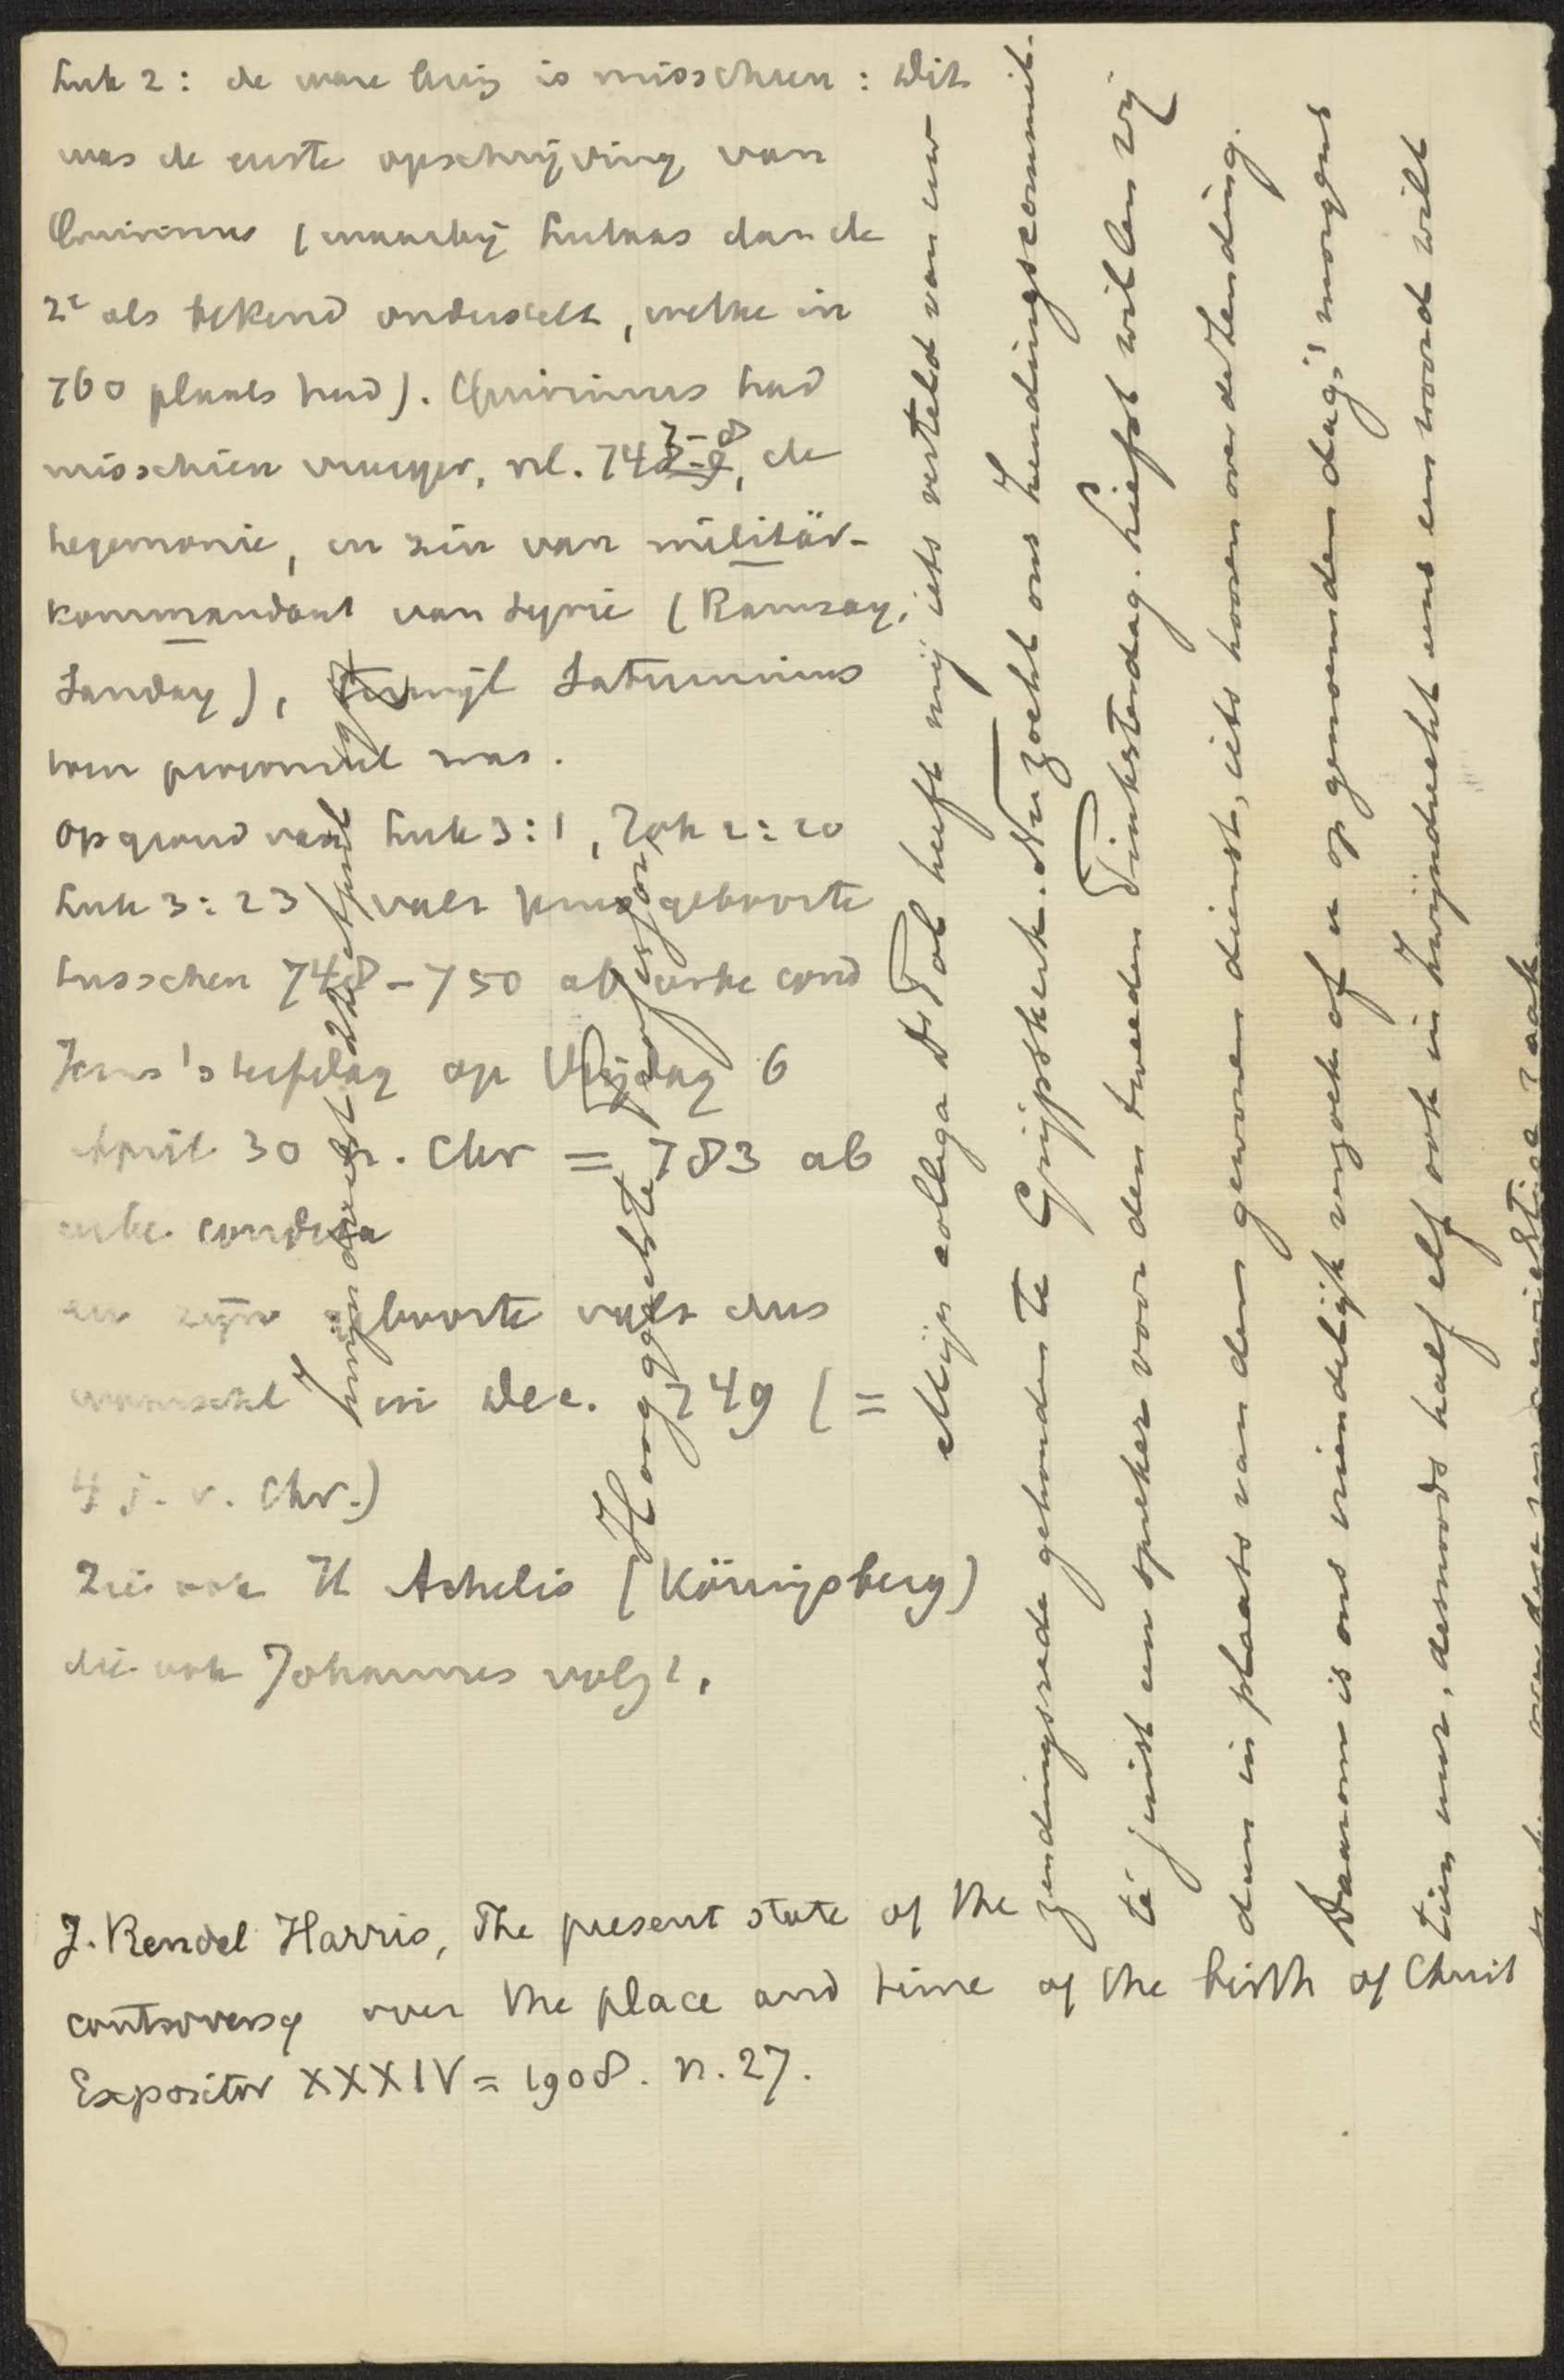 Luk 2: de ware lezing is misschien: Dit
was de eerste opschrijving van
Quirinius (waarbij Lukas dan de
2e als bekend onderstelt, welke in
760 plaats had). Quirinius had
misschien vroeger, nl. 747-8, de
hegemonie, in zin van militär-
kommandant van Syrie (Ramsay,
Sanday), terwijl Saturninus
toen was.
op grond van Luk 3:1, Joh 2:20
Luk 3:23 valt Jezus geboorte
tusschen 748-750 ab urbe cond
Jezus' sterfdag op Vrijdag 6
April 30 n. Chr = 783 ab
urbe condita
en zijn geboorte valt dus
waarschl in Dec. 749 (=
4 j. v. Chr.)
Zie ook H Achelis (Königsberg)
die ook Johannes volgt.
J. Rendel Harris, The present state of the
controversy over the place and time of the birth of Christ
Expositor XXXIV = 1908. n. 27.
Zwijndrecht
Hooggeachte Professor,
Mijn collega Ds Tol heeft mij iets verteld van uw
zendingsrede gehouden te Grijpskerk. Nu zoekt ons Zendingscommit-
té juist een spreker voor den tweeden Pinksterdag. Liefst willen wij
dan in plaats van den gewonen dienst, iets hooren over de Zending.
Daarom is ons vriendelijk verzoek of u op genoemden dag, 's morgens
tien uur, desnoods half elf ook in Zwijndrecht eens een woord wilt